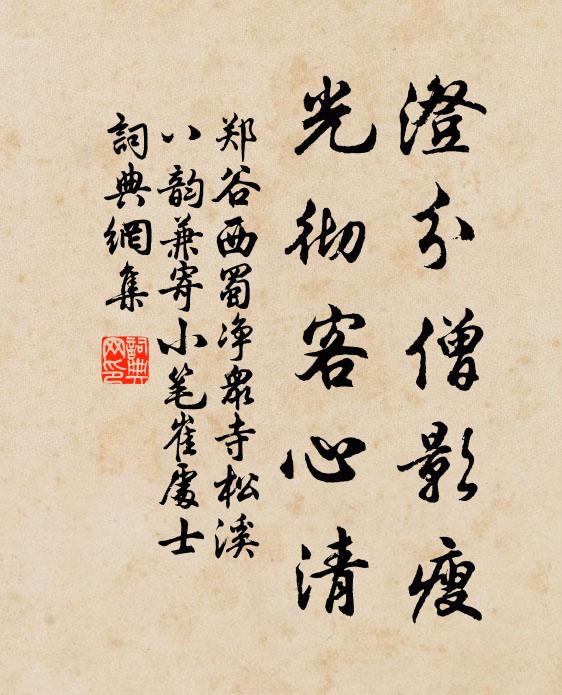 澄分僧影瘦
光彻客心清
郑谷西蜀净众寺松溪
八韵兼寄小笔崔處士
詞典網集
詞典
网印